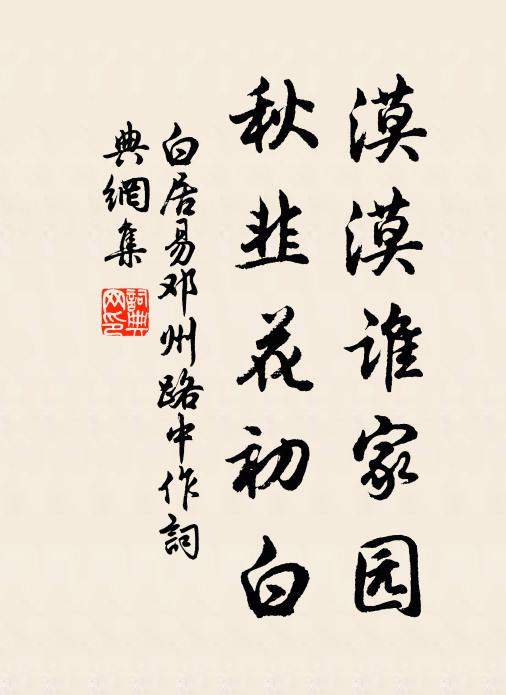 漠漠谁家园
秋韭花初白
白居易邓州路中作詞
典網集
詞典
网印